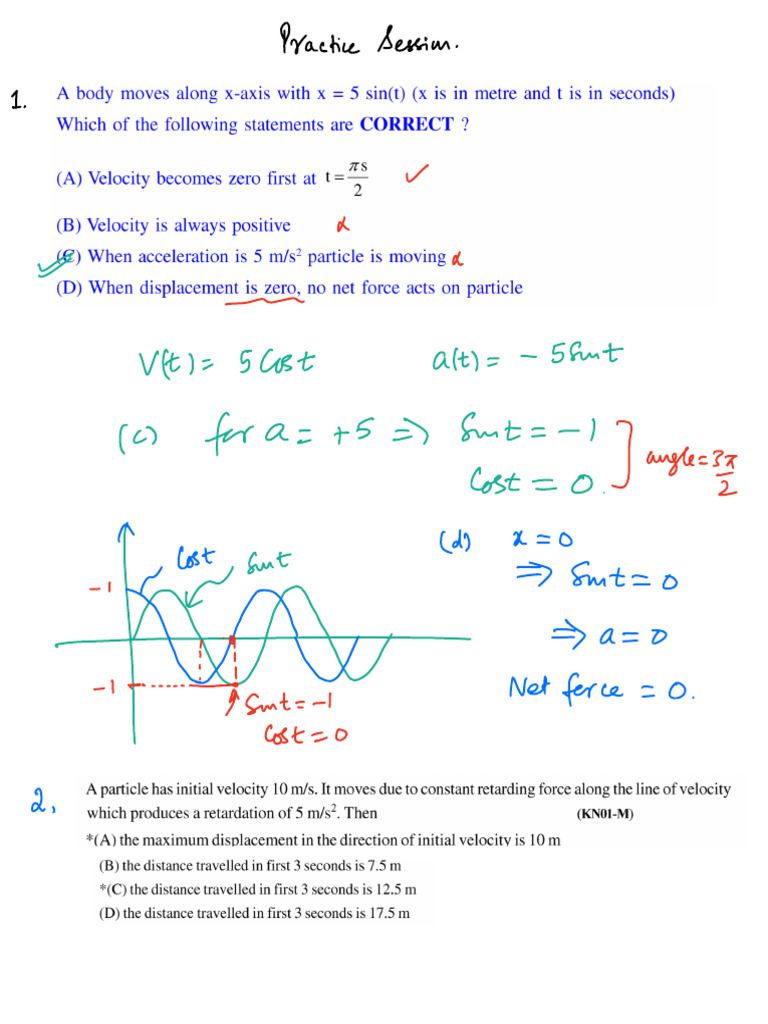 Practice Session.
1. A body moves along x-axis with x = 5 sin(t) (x is in metre and t is in seconds)
Which of the following statements are CORRECT ?
(A) Velocity becomes zero first at t = πs/2 ✓
(B) Velocity is always positive x
(C) When acceleration is 5 m/s² particle is moving x
(D) When displacement is zero, no net force acts on particle
V(t) = 5 Cost a(t) = - 5 Sint
(c) for a = +5 => Sint = -1
Cost = 0.
angle = 3π/2
(d) x = 0
=> Sint = 0
=> a = 0
Net force = 0.
Cost Sint
-1
-1
Sint = -1
Cost = 0
2, A particle has initial velocity 10 m/s. It moves due to constant retarding force along the line of velocity
which produces a retardation of 5 m/s². Then (KN01-M)
*(A) the maximum displacement in the direction of initial velocity is 10 m
(B) the distance travelled in first 3 seconds is 7.5 m
*(C) the distance travelled in first 3 seconds is 12.5 m
(D) the distance travelled in first 3 seconds is 17.5 m